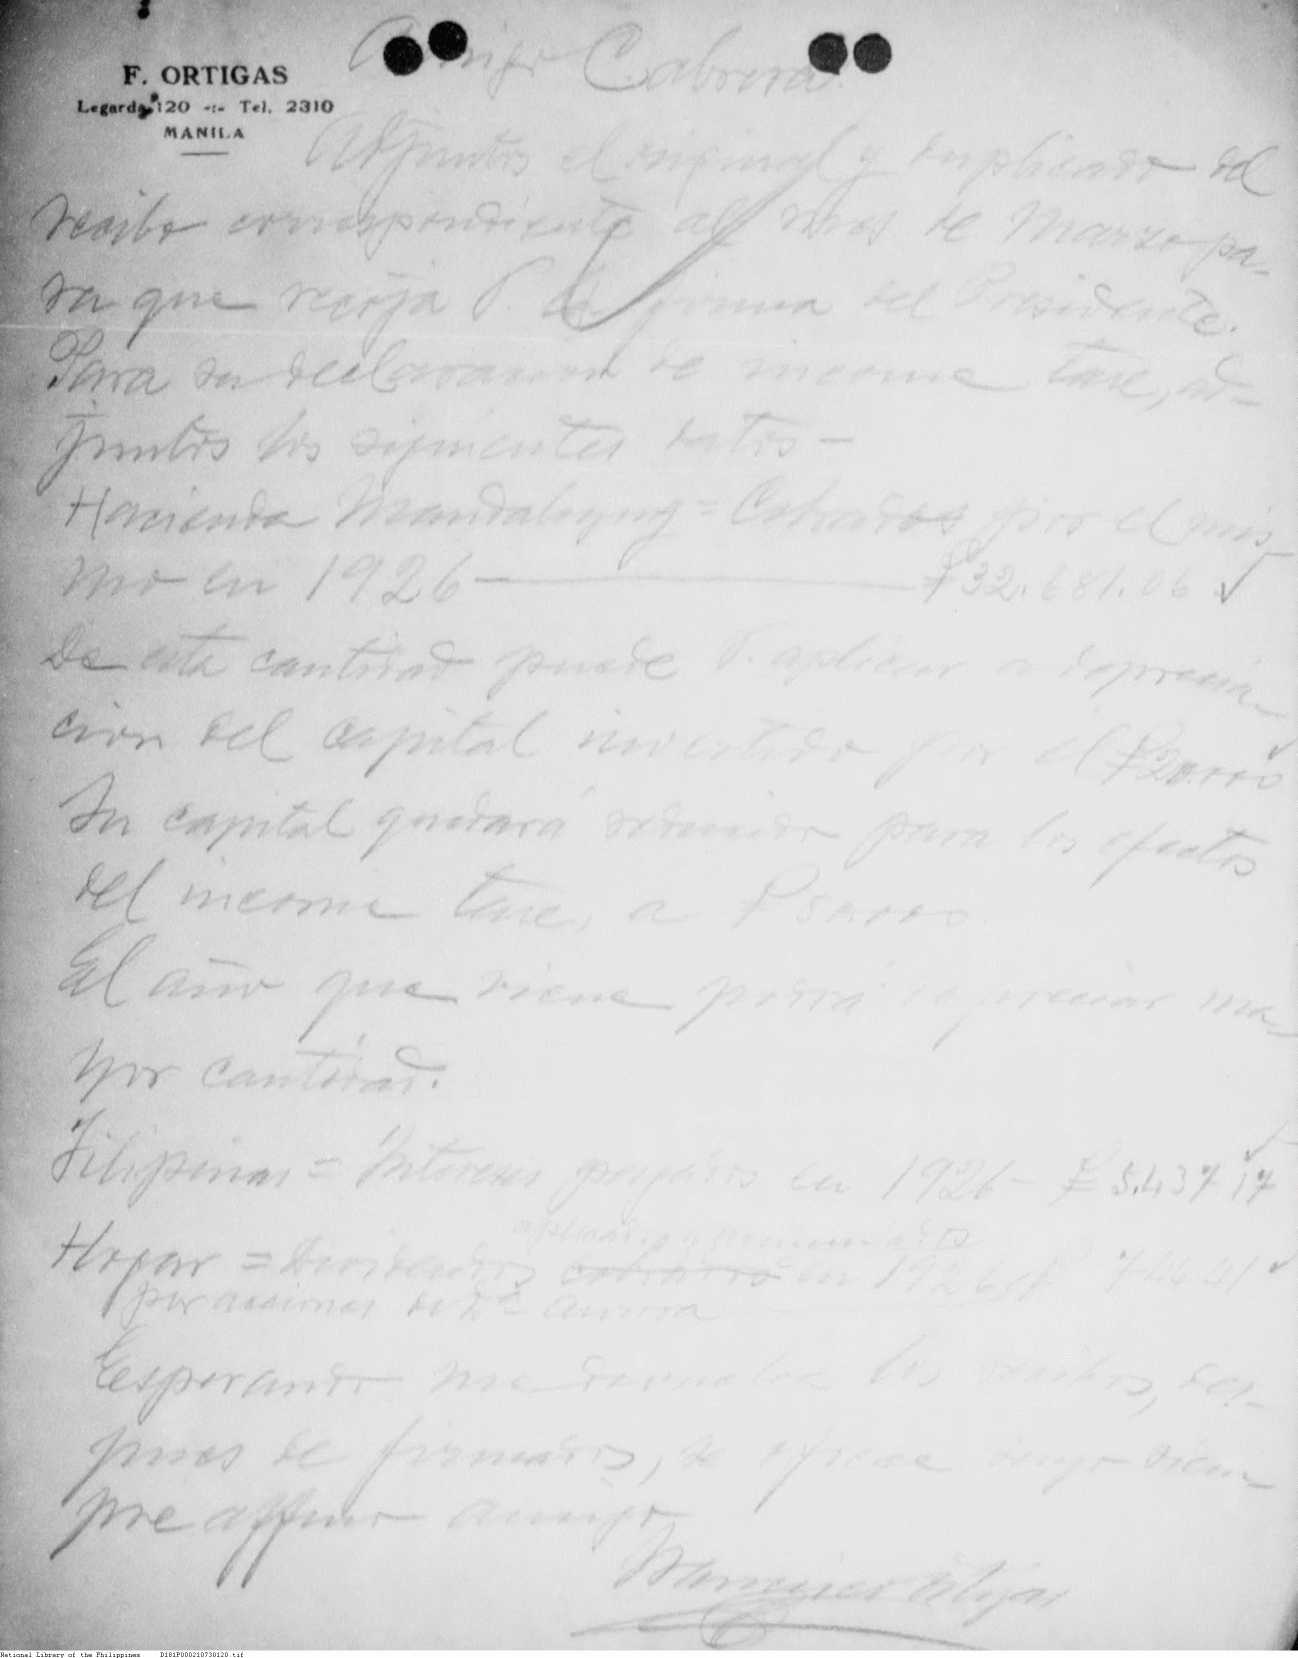 F. ORTIGAS
Legarda 120 -:- Tel. 2310
MANILA
Amigo Cabrera:
Adjuntos el original y duplicado del
recibo correspondiente al mes de Marzo pa-
ra que recoja V. la firma del Presidente.
Para su declaracion de income taxe, ad-
juntos los siguientes datos —
Hacienda Mandaloyong = Cobrados por el mis-
mo en 1926 — ₱32.681.06 ✓
De esta cantidad puede V. aplicar a
cion del capital invertido por el
Su capital quedará reducido para los efectos
del income taxe, a
El año que viene podrá depreciar ma-
yor cantidad.
Filipinas = Intereses pagados en 1926 — ₱ 5.437 17
Hogar = Dividendos cobrados en 1926
por acciones de Dª Aurora
Esperando me devuelva los recibos, des-
pues de firmados, se ofrece suyo siem-
pre affmo amigo
National Library of the Philippines D181P000210730120.tif